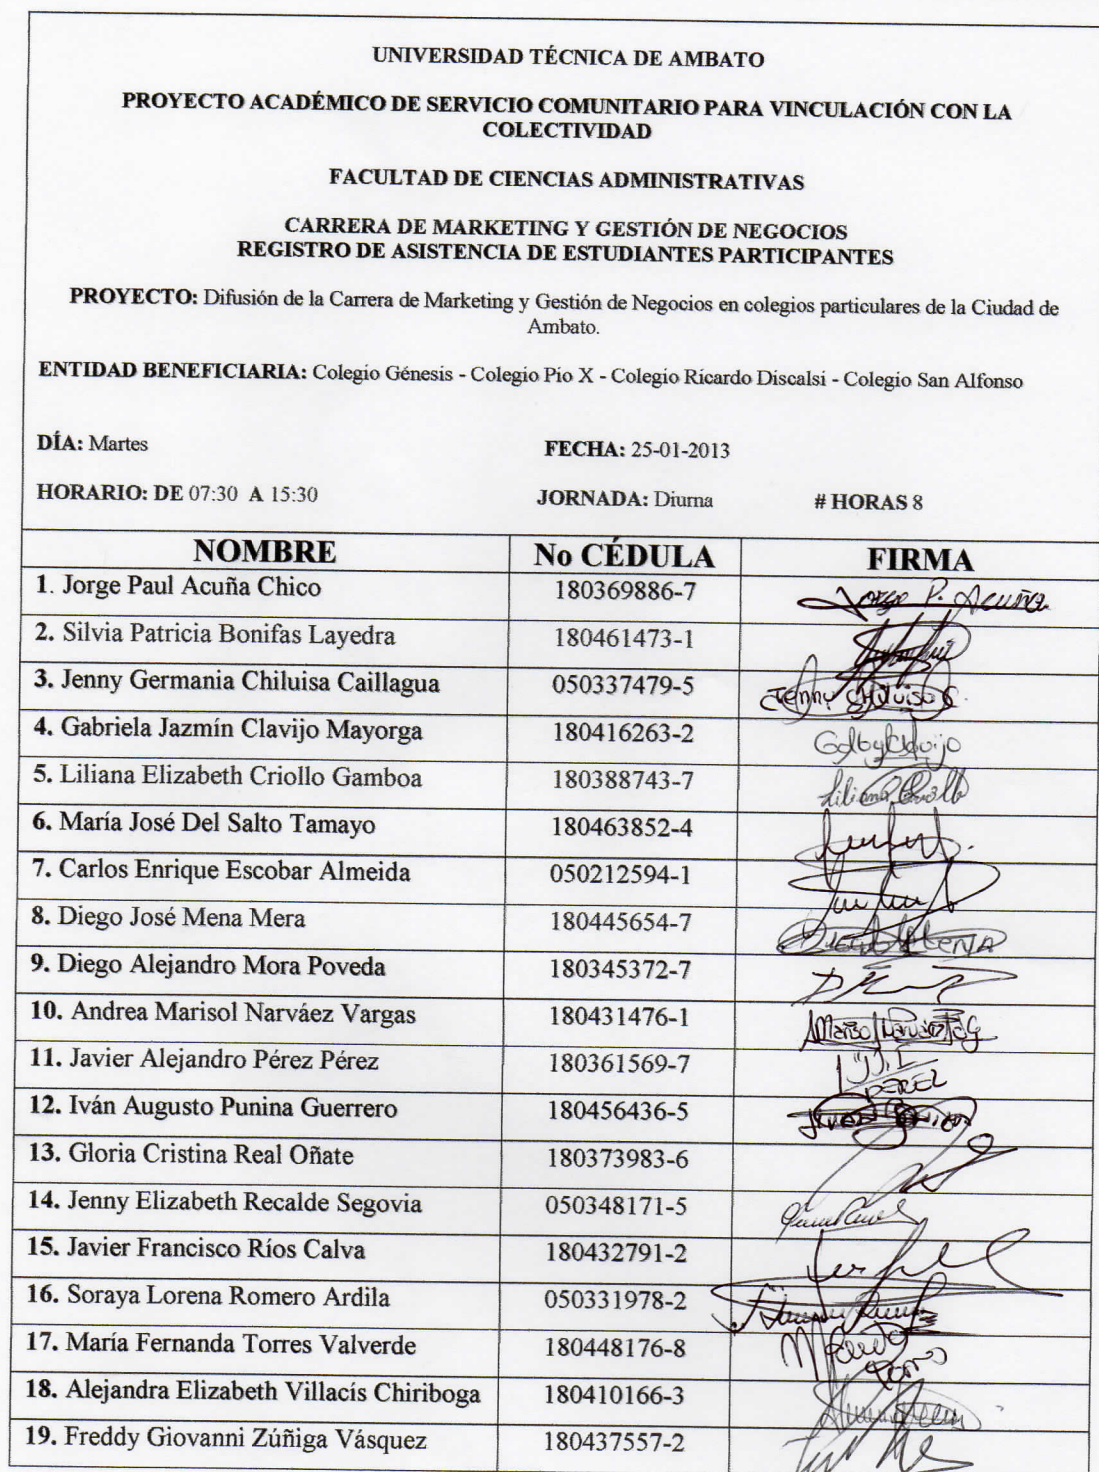 UNIVERSIDAD TÉCNICA DE AMBATO
PROYECTO ACADÉMICO DE SERVICIO COMUNITARIO PARA VINCULACIÓN CON LA
COLECTIVIDAD
FACULTAD DE CIENCIAS ADMINISTRATIVAS
CARRERA DE MARKETING Y GESTIÓN DE NEGOCIOS
REGISTRO DE ASISTENCIA DE ESTUDIANTES PARTICIPANTES
PROYECTO: Difusión de la Carrera de Marketing y Gestión de Negocios en colegios particulares de la Ciudad de
Ambato.
ENTIDAD BENEFICIARIA: Colegio Génesis - Colegio Pio X - Colegio Ricardo Discalsi - Colegio San Alfonso
DÍA: Martes FECHA: 25-01-2013
HORARIO: DE 07:30 A 15:30 JORNADA: Diurna # HORAS 8
NOMBRE No CÉDULA FIRMA
1. Jorge Paul Acuña Chico 180369886-7 Jorge P. Acuña
2. Silvia Patricia Bonifas Layedra 180461473-1
3. Jenny Germania Chiluisa Caillagua 050337479-5 Jenny Chiluisa C.
4. Gabriela Jazmín Clavijo Mayorga 180416263-2 Gabyclavijo
5. Liliana Elizabeth Criollo Gamboa 180388743-7 Liliana Criollo
6. María José Del Salto Tamayo 180463852-4
7. Carlos Enrique Escobar Almeida 050212594-1
8. Diego José Mena Mera 180445654-7 DIEGO MENA
9. Diego Alejandro Mora Poveda 180345372-7
10. Andrea Marisol Narváez Vargas 180431476-1
11. Javier Alejandro Pérez Pérez 180361569-7 PEREZ
12. Iván Augusto Punina Guerrero 180456436-5
13. Gloria Cristina Real Oñate 180373983-6
14. Jenny Elizabeth Recalde Segovia 050348171-5
15. Javier Francisco Ríos Calva 180432791-2
16. Soraya Lorena Romero Ardila 050331978-2
17. María Fernanda Torres Valverde 180448176-8
18. Alejandra Elizabeth Villacís Chiriboga 180410166-3
19. Freddy Giovanni Zúñiga Vásquez 180437557-2